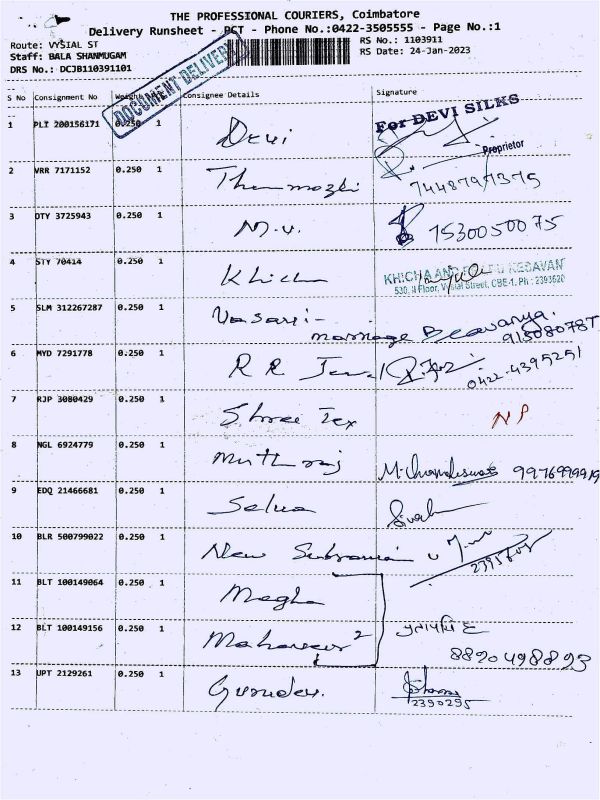 THE PROFESSIONAL COURIERS, Coimbatore
Delivery Runsheet - PCT - Phone No.:0422-3505555 - Page No.:1
Route: VYSIAL ST
RS No.: 1103911
Staff: BALA SHANMUGAM
RS Date: 24-Jan-2023
DRS No.: DCJB110391101
DOCUMENT DELIVERY
S No Consignment No Weight Consignee Details Signature
1 PLI 200156171 0.250 1 Devi For DEVI SILKS
Proprietor
2 VRR 7171152 0.250 1 Thenmozhi
3 OTY 3725943 0.250 1 M.V. 7530050075
4 STY 70414 0.250 1 Khicha KHICHA AND KESAVAN
530, II Floor, Vysial Street, CBE-1. Ph : 2393620
5 SLM 312267287 0.250 1 Vasavi -
marriage Bhavanya.
915080787
6 MYD 7291778 0.250 1 R R 0422-4395251
7 RJP 3080429 0.250 1 Shree Tex NP
8 NGL 6924779 0.250 1 Muthuraj M.Chandeswar 9976999919
9 EDQ 21466681 0.250 1 Selva
10 BLR 500799022 0.250 1 New Subramani
11 BLT 100149064 0.250 1 Megha
12 BLT 100149156 0.250 1 Mahaveer 2
8890498893
13 UPT 2129261 0.250 1 Gurudev.
2390295